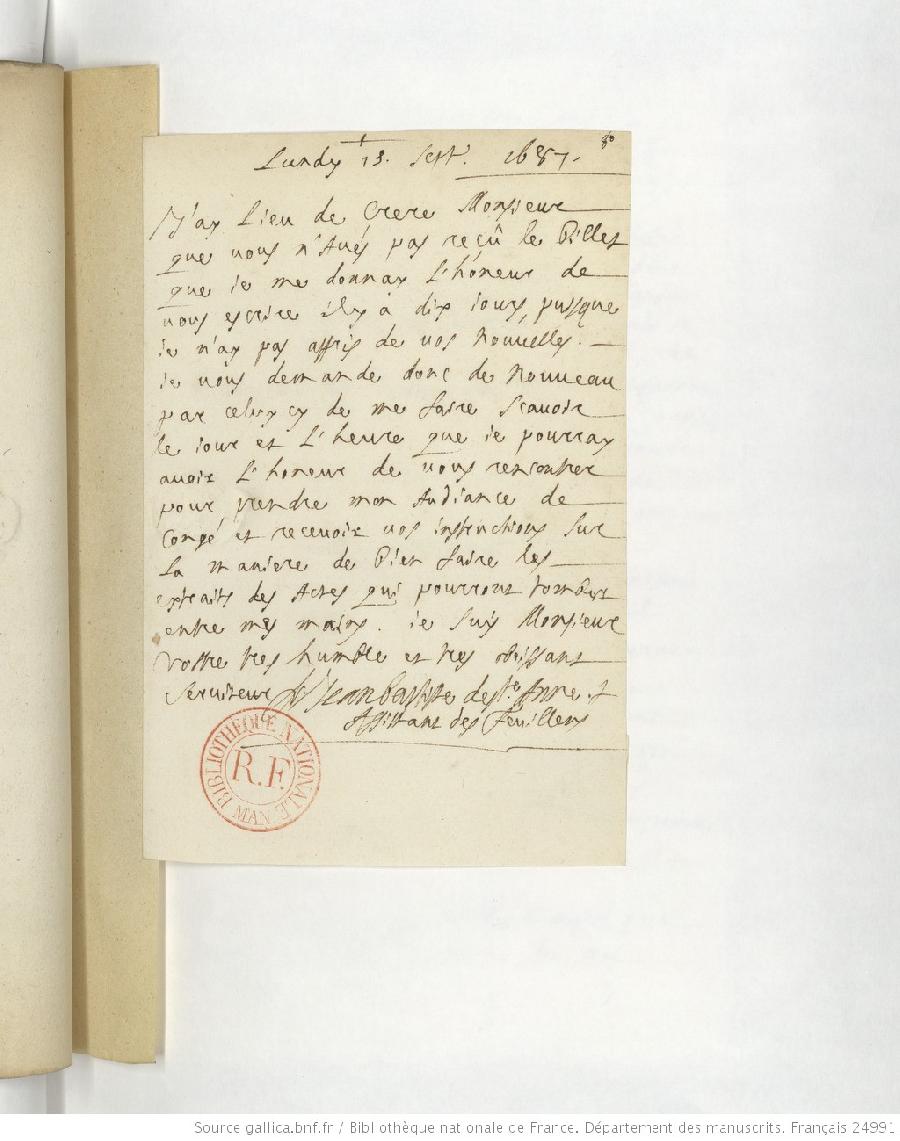 80
Lundy 13. Sept. 1687.
J'ay Lieu de Crere Monsieur
que vous n'Avés pas reçû le Billet
que ie me donnay L'honeur de
vous escrire il y à dix iours, pusque
ie n'ay pas appris de vos Nouvelles.
ie vous demande donc de Nouveau
par celuy cy de me faire scavoir
le iour et L'heure que ie pourray
avoir L'honeur de vous rencontrer
pour prendre mon Audiance de
Congé et recevoir vos instructions sur
La maniere de Bien faire les
extraits des Actes qui pourront tomber
entre mes mains. ie suis Monsieur
Vostre tres humble et tres obeissant
serviteur Jean Baptiste de Ste Anne
Assistant des Feuillens
BIBLIOTHEQUE NATIONALE
R.F.
MAN
Source gallica.bnf.fr / Bibliothèque nationale de France. Département des manuscrits. Français 24991